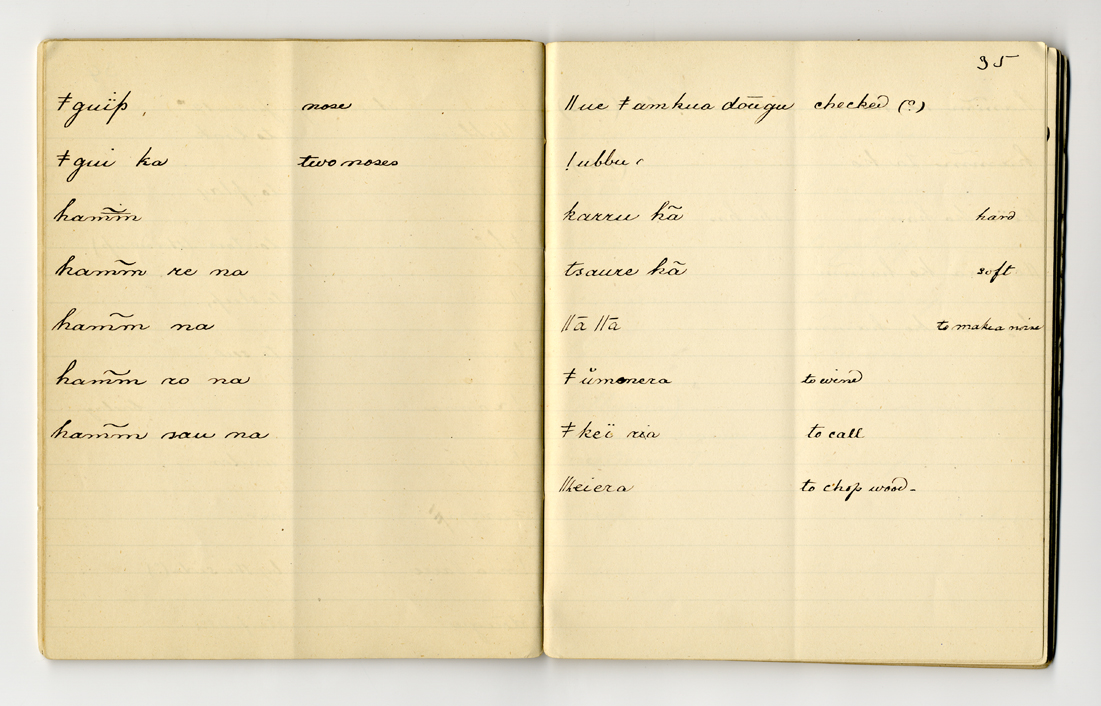 ǂguïp nose
ǂgui ka two noses
ham̃m
ham̃m re na
ham̃m na
ham̃m ro na
ham̃m sau na
35
ǁue ǂamkua dōugu checked (?)
!ubbu
karru hã hard
tsaure hã soft
ǁā ǁā to make a noise
ǂŭmonera to wind
ǂkeï ria to call
ǁkeiera to chop wood-